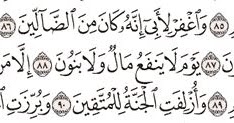 ٨٥ وَٱغْفِرْ لِأَبِىٓ إِنَّهُۥ كَانَ مِنَ ٱلضَّآلِّينَ ٨٦
٨٧ يَوْمَ لَا يَنفَعُ مَالٌ وَلَا بَنُونَ ٨٨ إِلَّا مَنْ
٨٩ وَأُزْلِفَتِ ٱلْجَنَّةُ لِلْمُتَّقِينَ ٩٠ وَبُرِّزَتِ